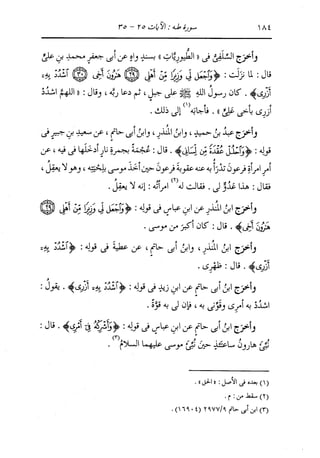 ١٨٤ سورة طه : الآيات ٢٥ - ٣٥
وأخرج السِّلَفىُّ فى « الطُّيوريَّاتِ » بسندٍ واهٍ عن أبى جعفرٍ محمدِ بنِ علىٍّ
قال : لما نزلت : ﴿وَٱجْعَل لِّى وَزِيرًا مِّنْ أَهْلِى ﴿٢٩﴾ هَٰرُونَ أَخِى ﴿٣٠﴾ ٱشْدُدْ بِهِۦ
أَزْرِى﴾ . كان رسولُ اللهِ ﷺ على جبلٍ ، ثم دعا ربَّه ، وقال : « اللهم اشدُدْ
أزرِى بأخى علىٍّ » . فأجابَه(١) إلى ذلك .
وأخرج عبدُ بنُ حميدٍ ، وابنُ المنذرِ ، وابنُ أبى حاتمٍ ، عن سعيدِ بنِ جبيرٍ فى
قوله : ﴿وَٱحْلُلْ عُقْدَةً مِّن لِّسَانِى﴾ . قال : عُجْمةٌ بجمرةِ نارٍ أدخَلها فى فيه ، عن
أمرِ امرأةِ فرعونَ تدْرَأُ به عنه عقوبةَ فرعونَ حينَ أخَذ موسى بلحيتِه ، وهو لا يعقِلُ ،
فقال : هذا عدُوٌّ لى . فقالت له(٢) امرأتُه : إنه لا يعقِلُ .
وأخرج ابنُ المنذرِ عن ابنِ عباسٍ فى قوله : ﴿وَٱجْعَل لِّى وَزِيرًا مِّنْ أَهْلِى ﴿٢٩﴾
هَٰرُونَ أَخِى﴾ . قال : كان أكبرَ من موسى .
وأخرج ابنُ المنذرِ ، وابنُ أبى حاتمٍ ، عن عطيةَ فى قوله : ﴿ٱشْدُدْ بِهِۦ
أَزْرِى﴾ . قال : ظهْرِى .
وأخرج ابنُ أبى حاتمٍ عن ابنِ زيدٍ فى قوله : ﴿ٱشْدُدْ بِهِۦ أَزْرِى﴾ . يقولُ :
اشدُدْ به أمرِى وقَوِّنى به ، فإن لى به قوةً .
وأخرج ابنُ أبى حاتمٍ عن ابنِ عباسٍ فى قوله : ﴿وَأَشْرِكْهُ فِىٓ أَمْرِى﴾ . قال :
نُبِّئَ هارونُ ساعتَئذٍ حينَ نُبِّئَ موسى عليهما السلامُ(٣) .
(١) بعده فى الأصل : « الحق » .
(٢) سقط من : م .
(٣) ابن أبى حاتم ٢٩٧٧/٩ (١٦٩٠٤) .